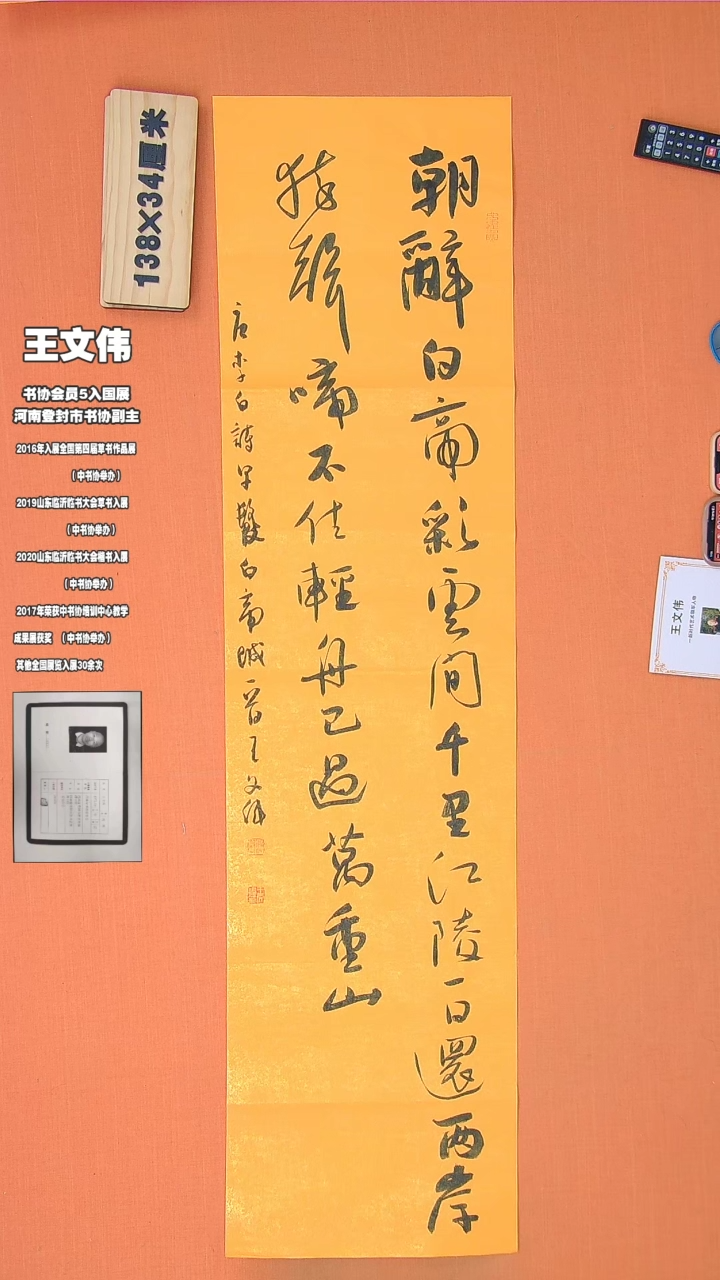 朝辭白帝彩雲間千里江陵一日還兩岸
猿聲啼不住輕舟已過萬重山
唐李白詩早發白帝城一首王文偉
138×34厘米
王文伟
书协会员5入国展
河南登封市书协副主
2016年入展全国第四届草书作品展
（中书协举办）
2019山东临沂临书大会草书入展
（中书协举办）
2020山东临沂临书大会楷书入展
（中书协举办）
2017年荣获中书协培训中心教学
成果展获奖 （中书协举办）
其他全国展览入展30余次
王文伟